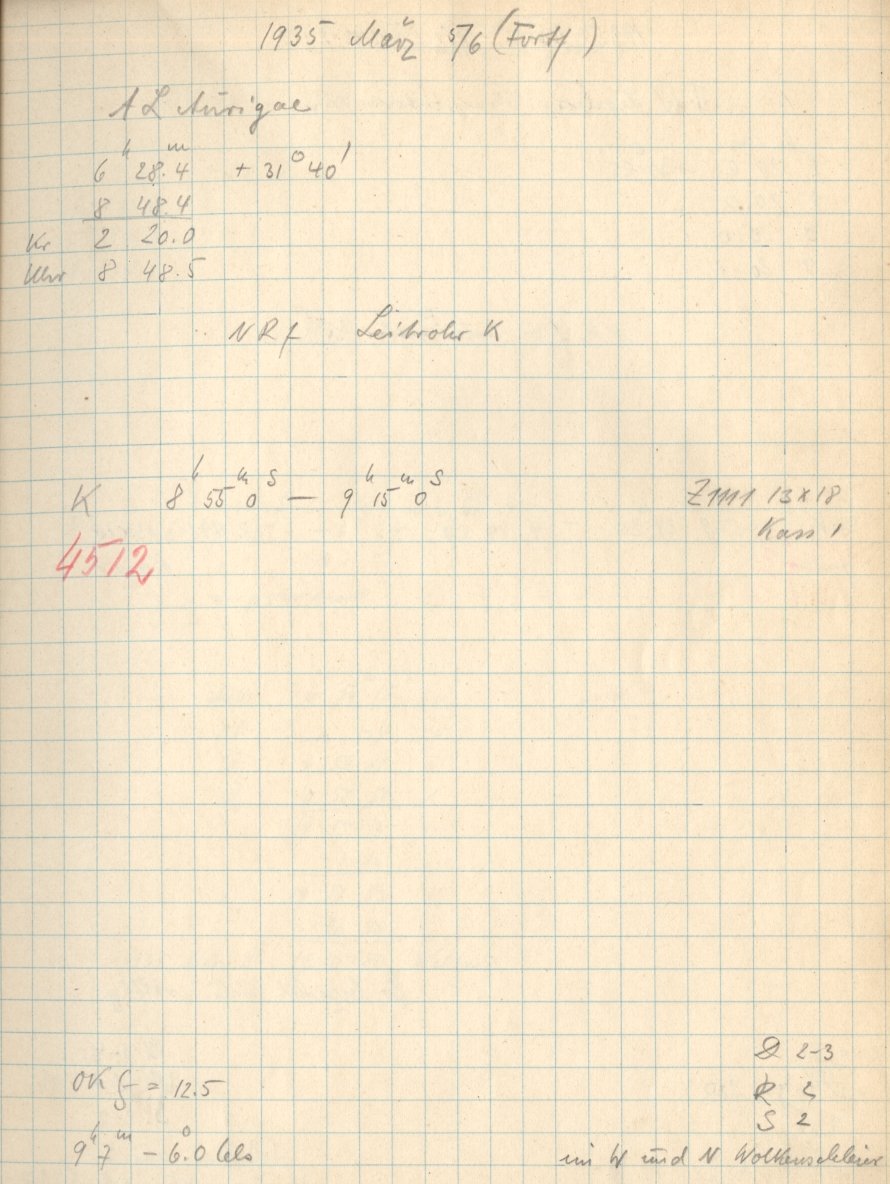 1935 März 5/6 (Forts)
AL Aurigae
6h 28.m4 + 31° 40'
8 48.4
Kr 2 20.0
Uhr 8 48.5
NRf Leitrohr K
K 8h 55m 0s — 9h 15m 0s Z1111 13x18
Kass 1
4512
D 2-3
OK f = 12.5
R 2
S 2
9h 7m - 6.°0 Cels
im W und N Wolkenschleier